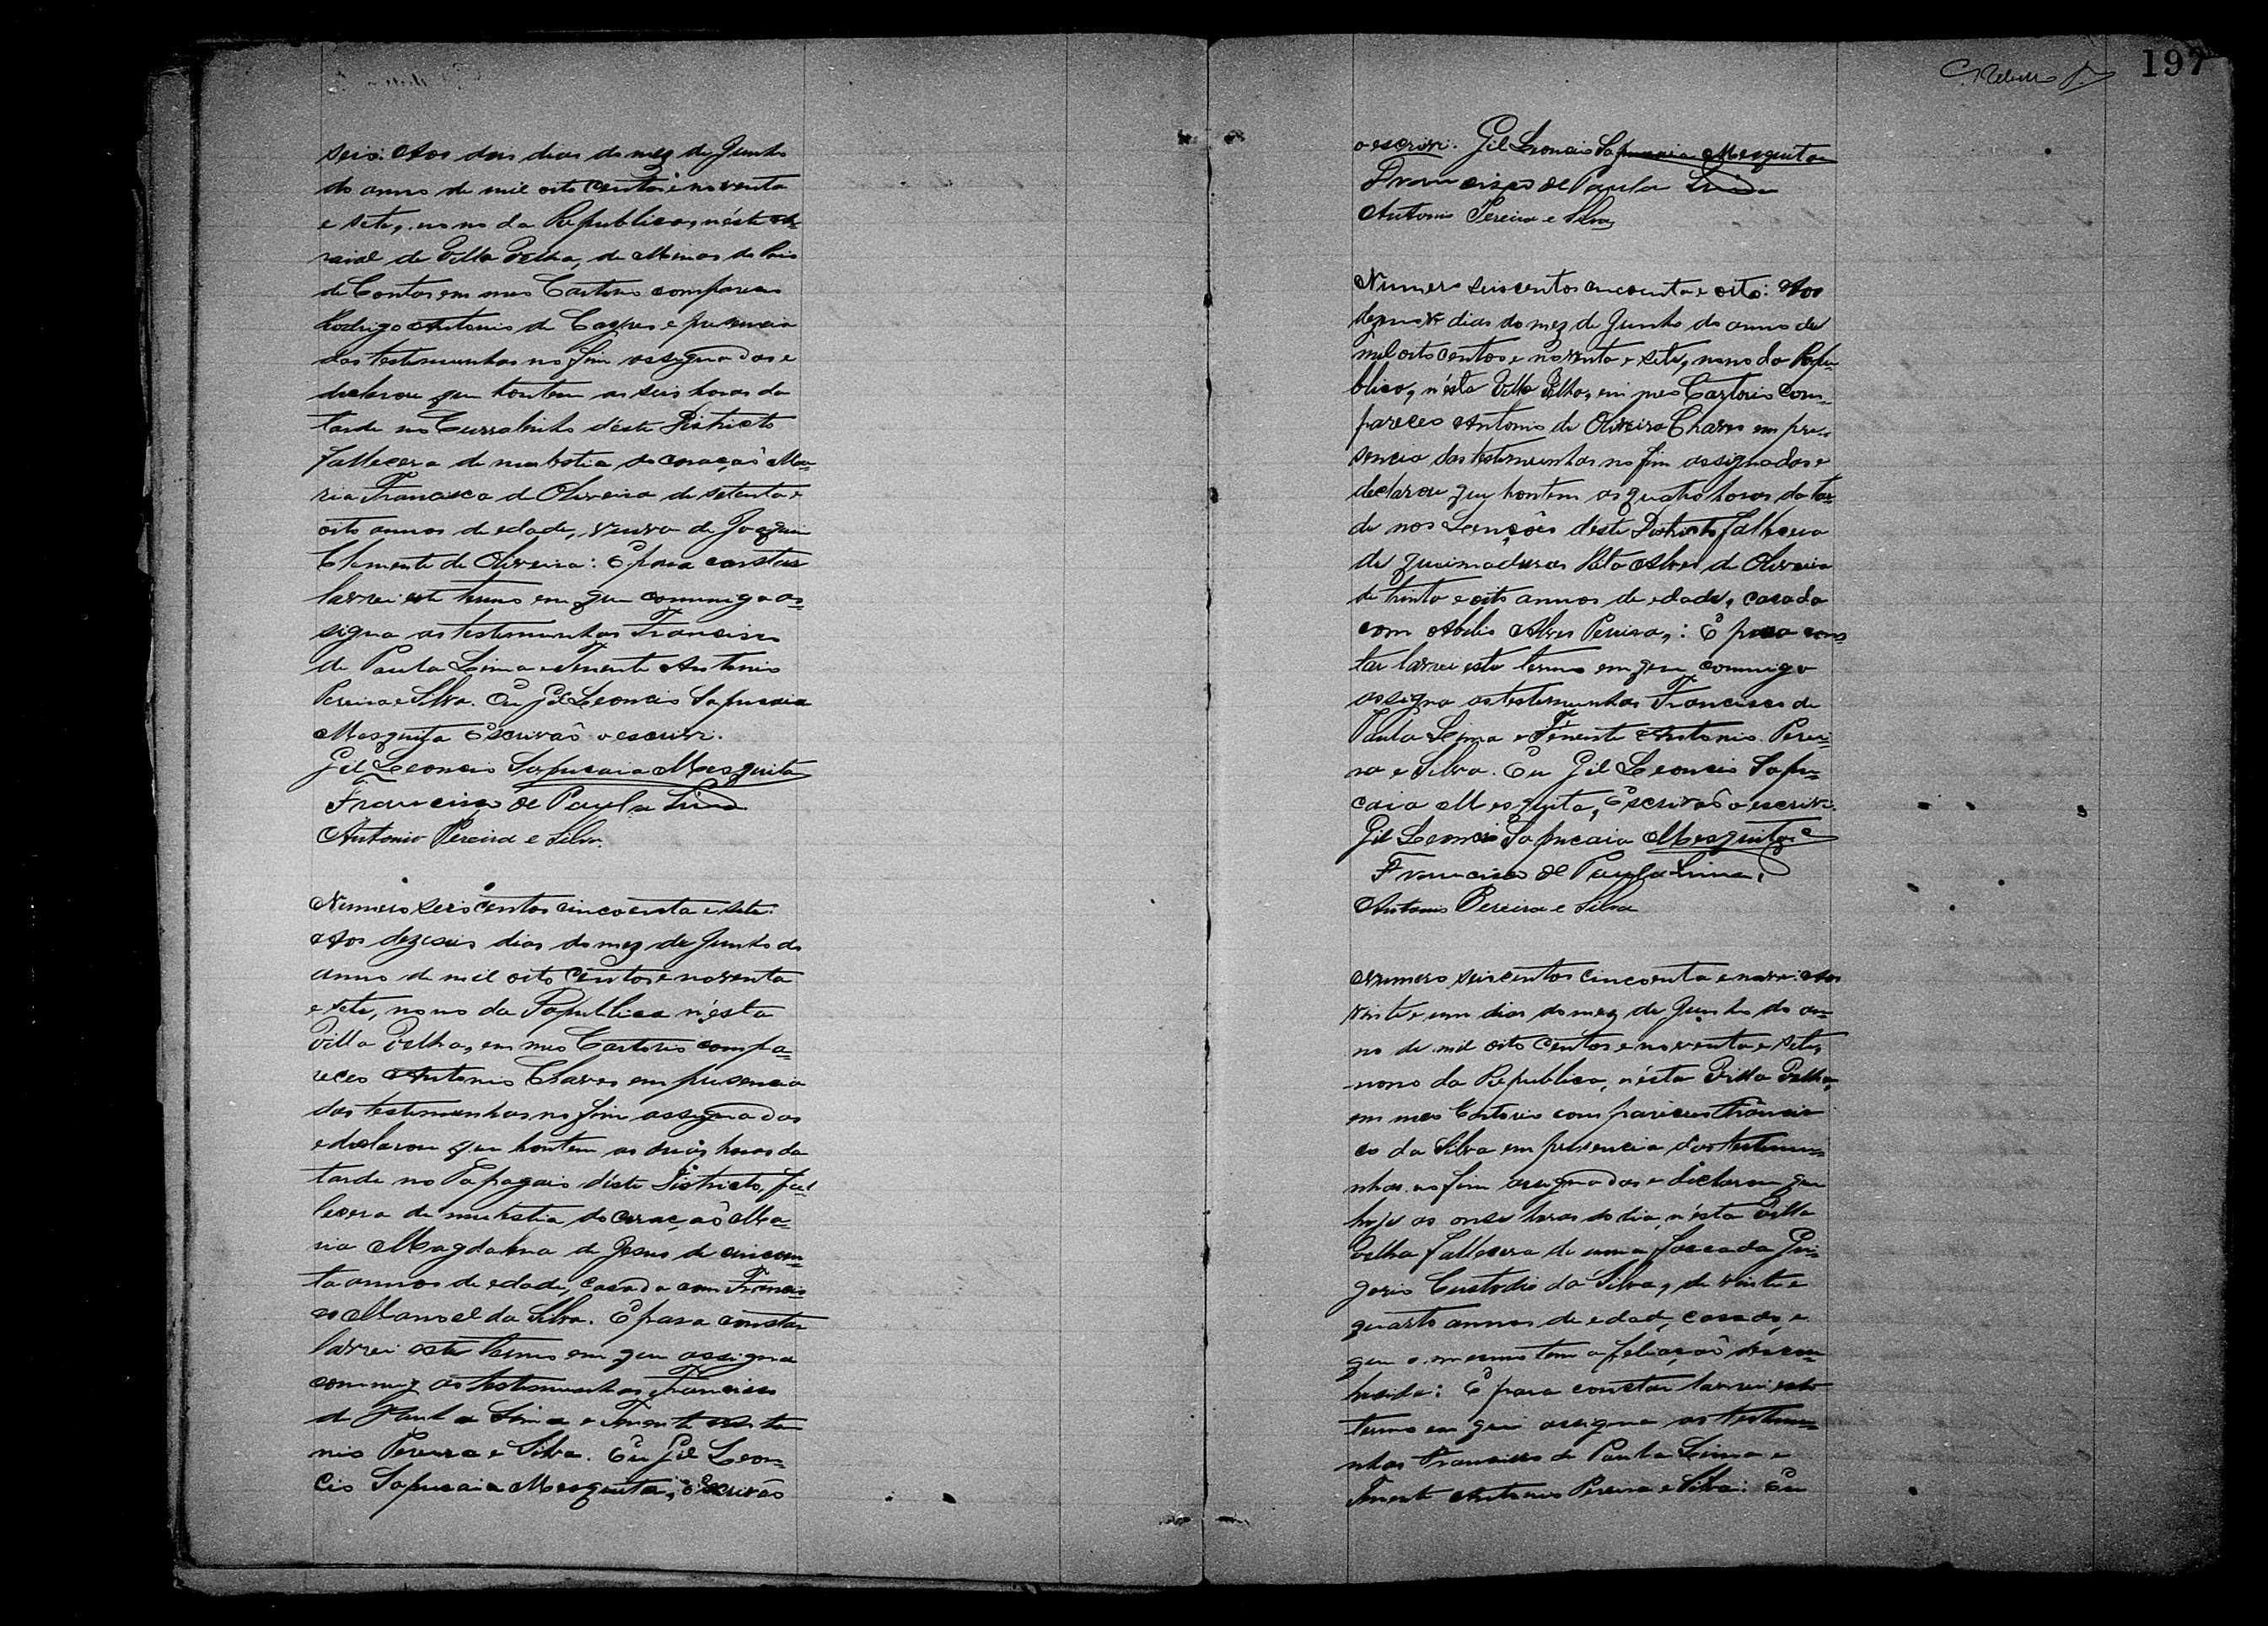 seis: Aos dois dias do mez de Junho
do anno de mil oito centos e noventa
e sete, nono da Republica, néste Ar-
raial de Villa Velha, de Minas do Rio
de Contas em meo Cartorio compareceo
Rodrigo Antonio de Castro e presencia
das testemunhas no fim assignadas e
declarou que hontem as seis horas da
tarde no Curralinho déste Districto
fallecera de molestia do coração Ma-
ria Francisca de Oliveira de setenta e
oito annos de edade, viuva de Joaquim
Clemente de Oliveira: E para constar
lavrei este termo em que commigo as-
signa as testemunhas Francisco
de Paula Lima e Tenente Antonio
Pereira e Silva. Eu Gil Leoncio Sapucaia
Mesquita Escrivão o escrivi.
Gil Leoncio Sapucaia Mesquita
Francisco de Paula Lima
Antonio Pereira e Silva.
Numero seis centos cincoenta e sete:
Aos dezeseis dias do mez de Junho do
anno de mil oito centos e noventa
e sete, nono da Republica n'esta
Villa Velha, em meo Cartorio compa-
receo Antonio Chaves em presencia
das testemunhas no fim assignadas
e declarou que hontem as horas da
tarde no Papagaio déste Districto, fal
lecera de molestia do coração Ma-
ria Magdalena de Jesus de cincoen-
ta annos de edade, casada com Francis-
co Manoel da Silva. E para constar
lavrei este termo em que assigna
commigo as testemunhas Francisco
de Paula Lima e Tenente Anto
nio Pereira e Silva. Eu Gil Leon-
cio Sapucaia Mesquita, Escrivão
197
o escrivi. Gil Leoncio Sapucaia Mesquita
Francisco de Paula Lima
Antonio Pereira e Silva
Numero seiscentos cincoenta e oito: Aos
dezenove dias do mez de Junho do anno de
mil oito centos e noventa e sete, nono da Repu-
blica, n'ésta Villa Velha, em meo Cartorio com-
pareceo Antonio de Oliveira Chaves em pre-
sencia das testemunhas no fim assignadas e
declarou que hontem as quatro horas da tar-
de nos Lençóes deste Districto fallecera
de queimaduras Alves de Oliveira
de trinta e oito annos de edade, casada
com Abilio Alves Pereira,: E para cons-
tar lavrei este termo em que commigo
assigna as testemunhas Francisco de
Paula Lima e Tenente Antonio Perei-
ra e Silva. Eu Gil Leoncio Sapu-
caia Mesquita, Escrivão o escrivi.
Gil Leoncio Sapucaia Mesquita
Francisco de Paula Lima
Antonio Pereira e Silva
Numero seiscentos cincoenta e nove: Aos
vinte e um dias do mez de Junho do an-
no de mil oito centos e noventa e sete,
nono da Republica, n'ésta Villa Velha,
em meo Cartorio compareceu Francis
co da Silva em presencia das testemu-
nhas no fim assignadas e declarou que
hoje as onze horas do dia, n'ésta Villa
Velha fallecera de uma faccada Gri-
gorio Custodio da Silva, de vinte e
quatro annos de edade, casado, e
que o mesmo tem a feliação descon-
hecida: E para constar lavrei este
termo em que assigna as testemu-
nhas Francisco de Paula Lima e
Tenente Antonio Pereira e Silva: Eu